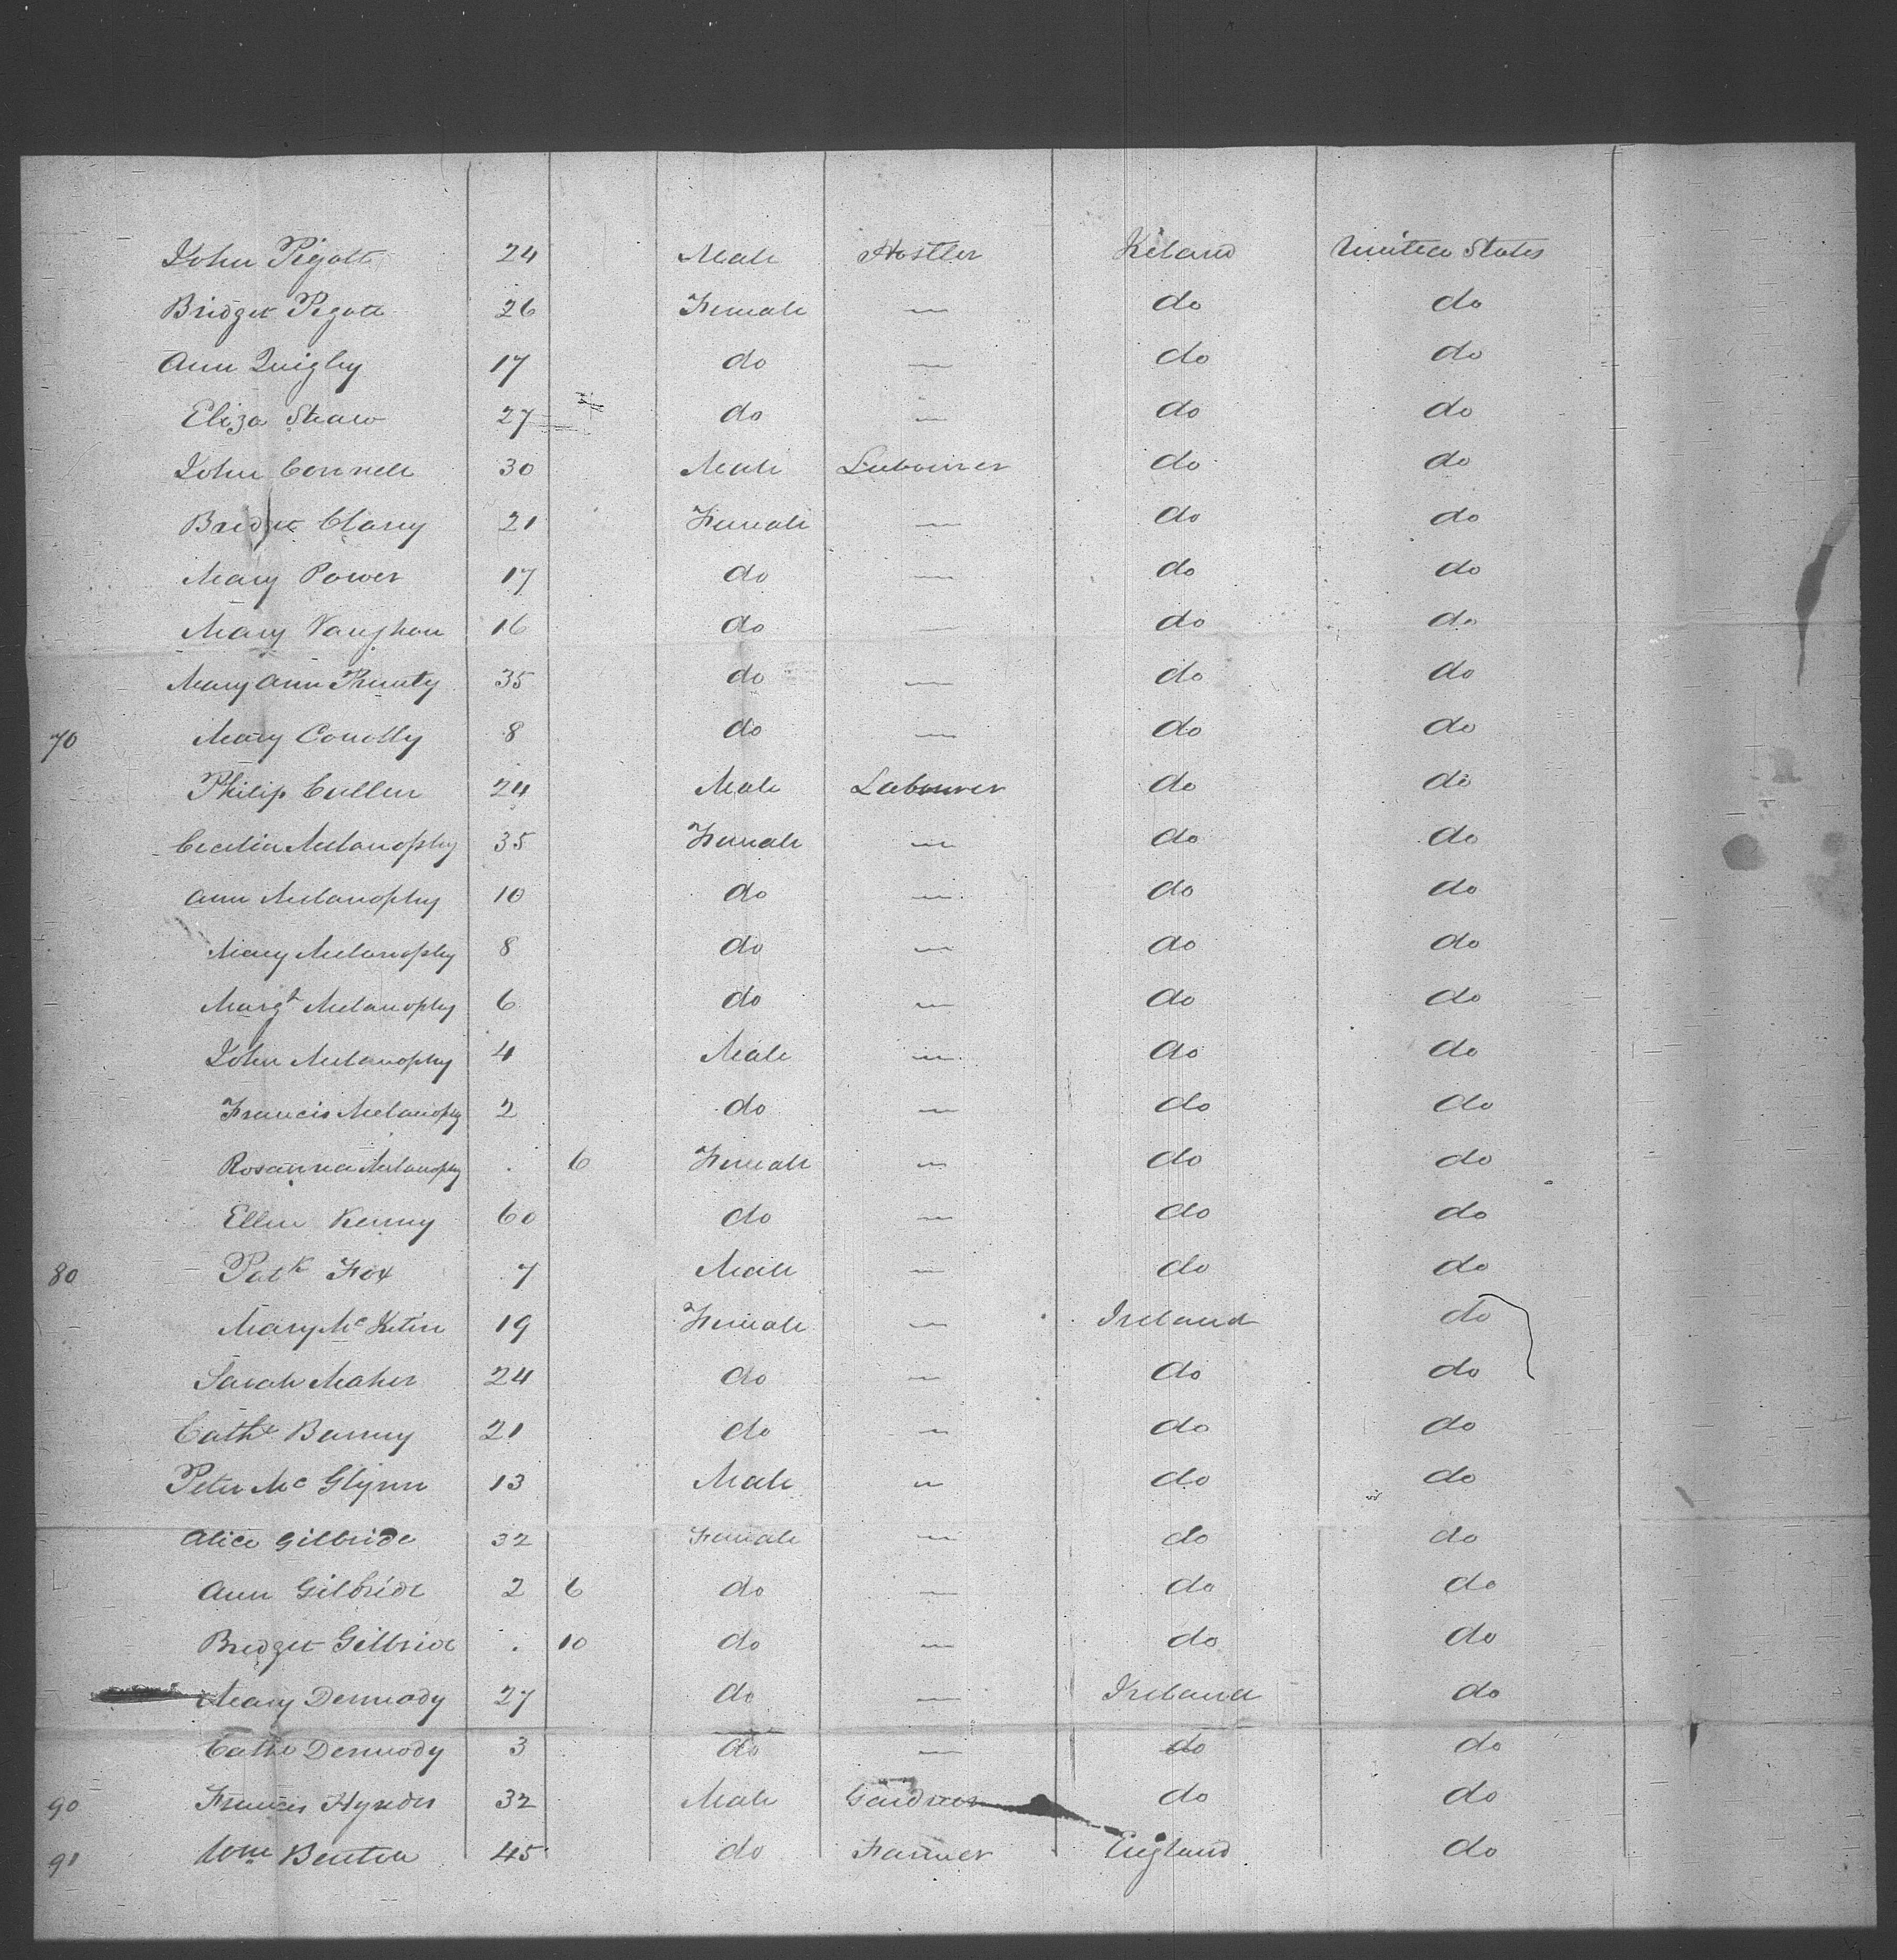 John Pigott 24 Male Hostler Ireland United States
Bridget Pigott 26 Female — do do
Ann Quigley 17 do — do do
Eliza Shaw 27 do — do do
John Connell 30 Male Labourer do do
Bridget Clary 21 Female — do do
Mary Power 17 do — do do
Mary Vaughan 16 do — do do
Mary Ann Prunty 35 do — do do
70 Mary Conolly 8 do — do do
Philip Cullen 24 Male Labourer do do
Cecelia Melanophy 35 Female — do do
Ann Melanophy 10 do — do do
Mary Melanophy 8 do — do do
Margt Melanophy 6 do — do do
John Melanophy 4 Male — do do
Francis Melanophy 2 do — do do
Rosanna Melanophy . 6 Female — do do
Ellen Kenny 60 do — do do
80 Patk Fox 7 Male — do do
Mary Mc 19 Female — Ireland do
Sarah Maher 24 do — do do
Cathe 21 do — do do
Peter Mc Glynn 13 Male — do do
Alice Gilbride 32 Female — do do
Ann Gilbride 2 6 do — do do
Bridget Gilbride . 10 do — do do
Mary Dermody 27 do — Ireland do
Cathe Dermody 3 do — do do
90 Francis Hynds 32 Male Gardner do do
91 Wm Benton 45 do Farmer England do